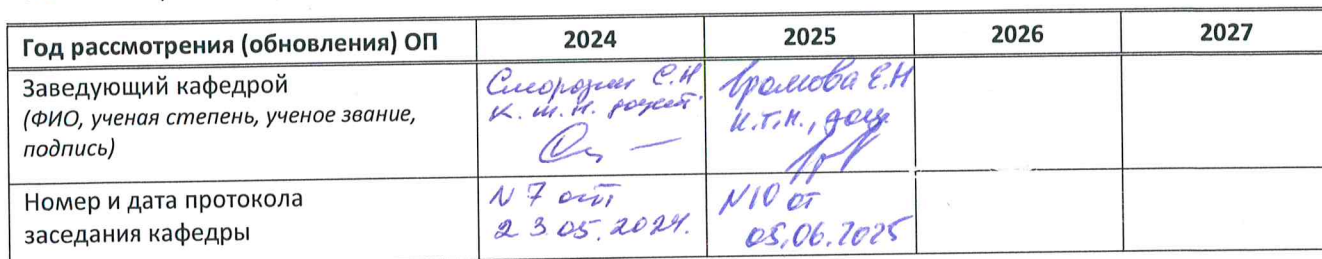 Год рассмотрения (обновления) ОП 2024 2025 2026 2027
Заведующий кафедрой
(ФИО, ученая степень, ученое звание,
подпись)
Смородин С.Н
к.т.н. доцент.
Громова Е.Н
к.т.н., доц.
Номер и дата протокола
заседания кафедры
N 7 от
23.05.2024.
N10 от
05.06.2025